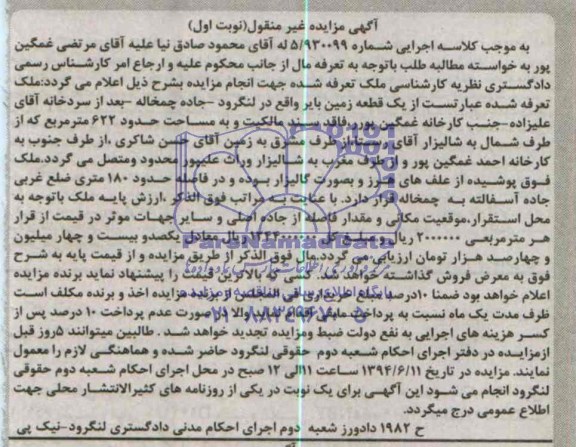 آگهی مزایده غیر منقول(نوبت اول)
به موجب کلاسه اجرایی شماره ۵/۹۳۰۰۹۹ له آقای محمود صادق نیا علیه آقای مرتضی غمگین
پور به خواسته مطالبه طلب باتوجه به تعرفه مال از جانب محکوم علیه و ارجاع امر کارشناس رسمی
دادگستری نظریه کارشناسی ملک تعرفه شده جهت انجام مزایده بشرح ذیل اعلام می گردد:ملک
تعرفه شده عبارتست از یک قطعه زمین بایر واقع در لنگرود -جاده چمخاله -بعد از سردخانه آقای
علیزاده-جنب کارخانه غمگین پور، فاقد سند مالکیت و به مساحت حدود ۶۲۲ مترمربع که از
طرف شمال به شالیزار آقای از طرف مشرق به زمین آقای حسن شاکری ،از طرف جنوب به
کارخانه احمد غمگین پور و از طرف مغرب به شالیزار وراث علیپور محدود ومتصل می گردد.ملک
فوق پوشیده از علف های هرز و بصورت گالیزار بوده و در فاصله حدود ۱۸۰ متری ضلع غربی
جاده آسفالته به چمخاله قرار دارد. با عنایت به مراتب فوق الذکر ،ارزش پایه ملک باتوجه به
محل استقرار،موقعیت مکانی و مقدار فاصله از جاده اصلی و سایر جهات موثر در قیمت از قرار
هر مترمربعی ۲۰۰۰۰۰۰ ریال و ریال معادل یکصدو بیست و چهار میلیون
و چهارصد هزار تومان ارزیابی می گردد.مال فوق الذکر از طریق مزایده و از قیمت پایه به شرح
فوق به معرض فروش گذاشته کسی که بالاترین قیمت را پیشنهاد نماید برنده مزایده
اعلام خواهد بود ضمنا ۱۰درصد مبلغ فی المجلس از برنده مزایده اخذ و برنده مکلف است
ظرف مدت یک ماه نسبت به پرداخت اقدام والا در صورت عدم پرداخت ۱۰ درصد پس از
کسر هزینه های اجرایی به نفع دولت ضبط ومزایده تجدید خواهد شد . طالبین میتوانند ۵روز قبل
ازمزایده در دفتر اجرای احکام شعبه دوم حقوقی لنگرود حاضر شده و هماهنگی لازم را معمول
نمایند. مزایده در تاریخ ۱۳۹۴/۶/۱۱ ساعت ۱۱الی ۱۲ صبح در محل اجرای احکام شعبه دوم حقوقی
لنگرود انجام می شود این آگهی برای یک نوبت در یکی از روزنامه های کثیرالانتشار محلی جهت
اطلاع عمومی درج میگردد.
ح ۱۹۸۲ دادورز شعبه دوم اجرای احکام مدنی دادگستری لنگرود-نیک پی
ParsNamadData